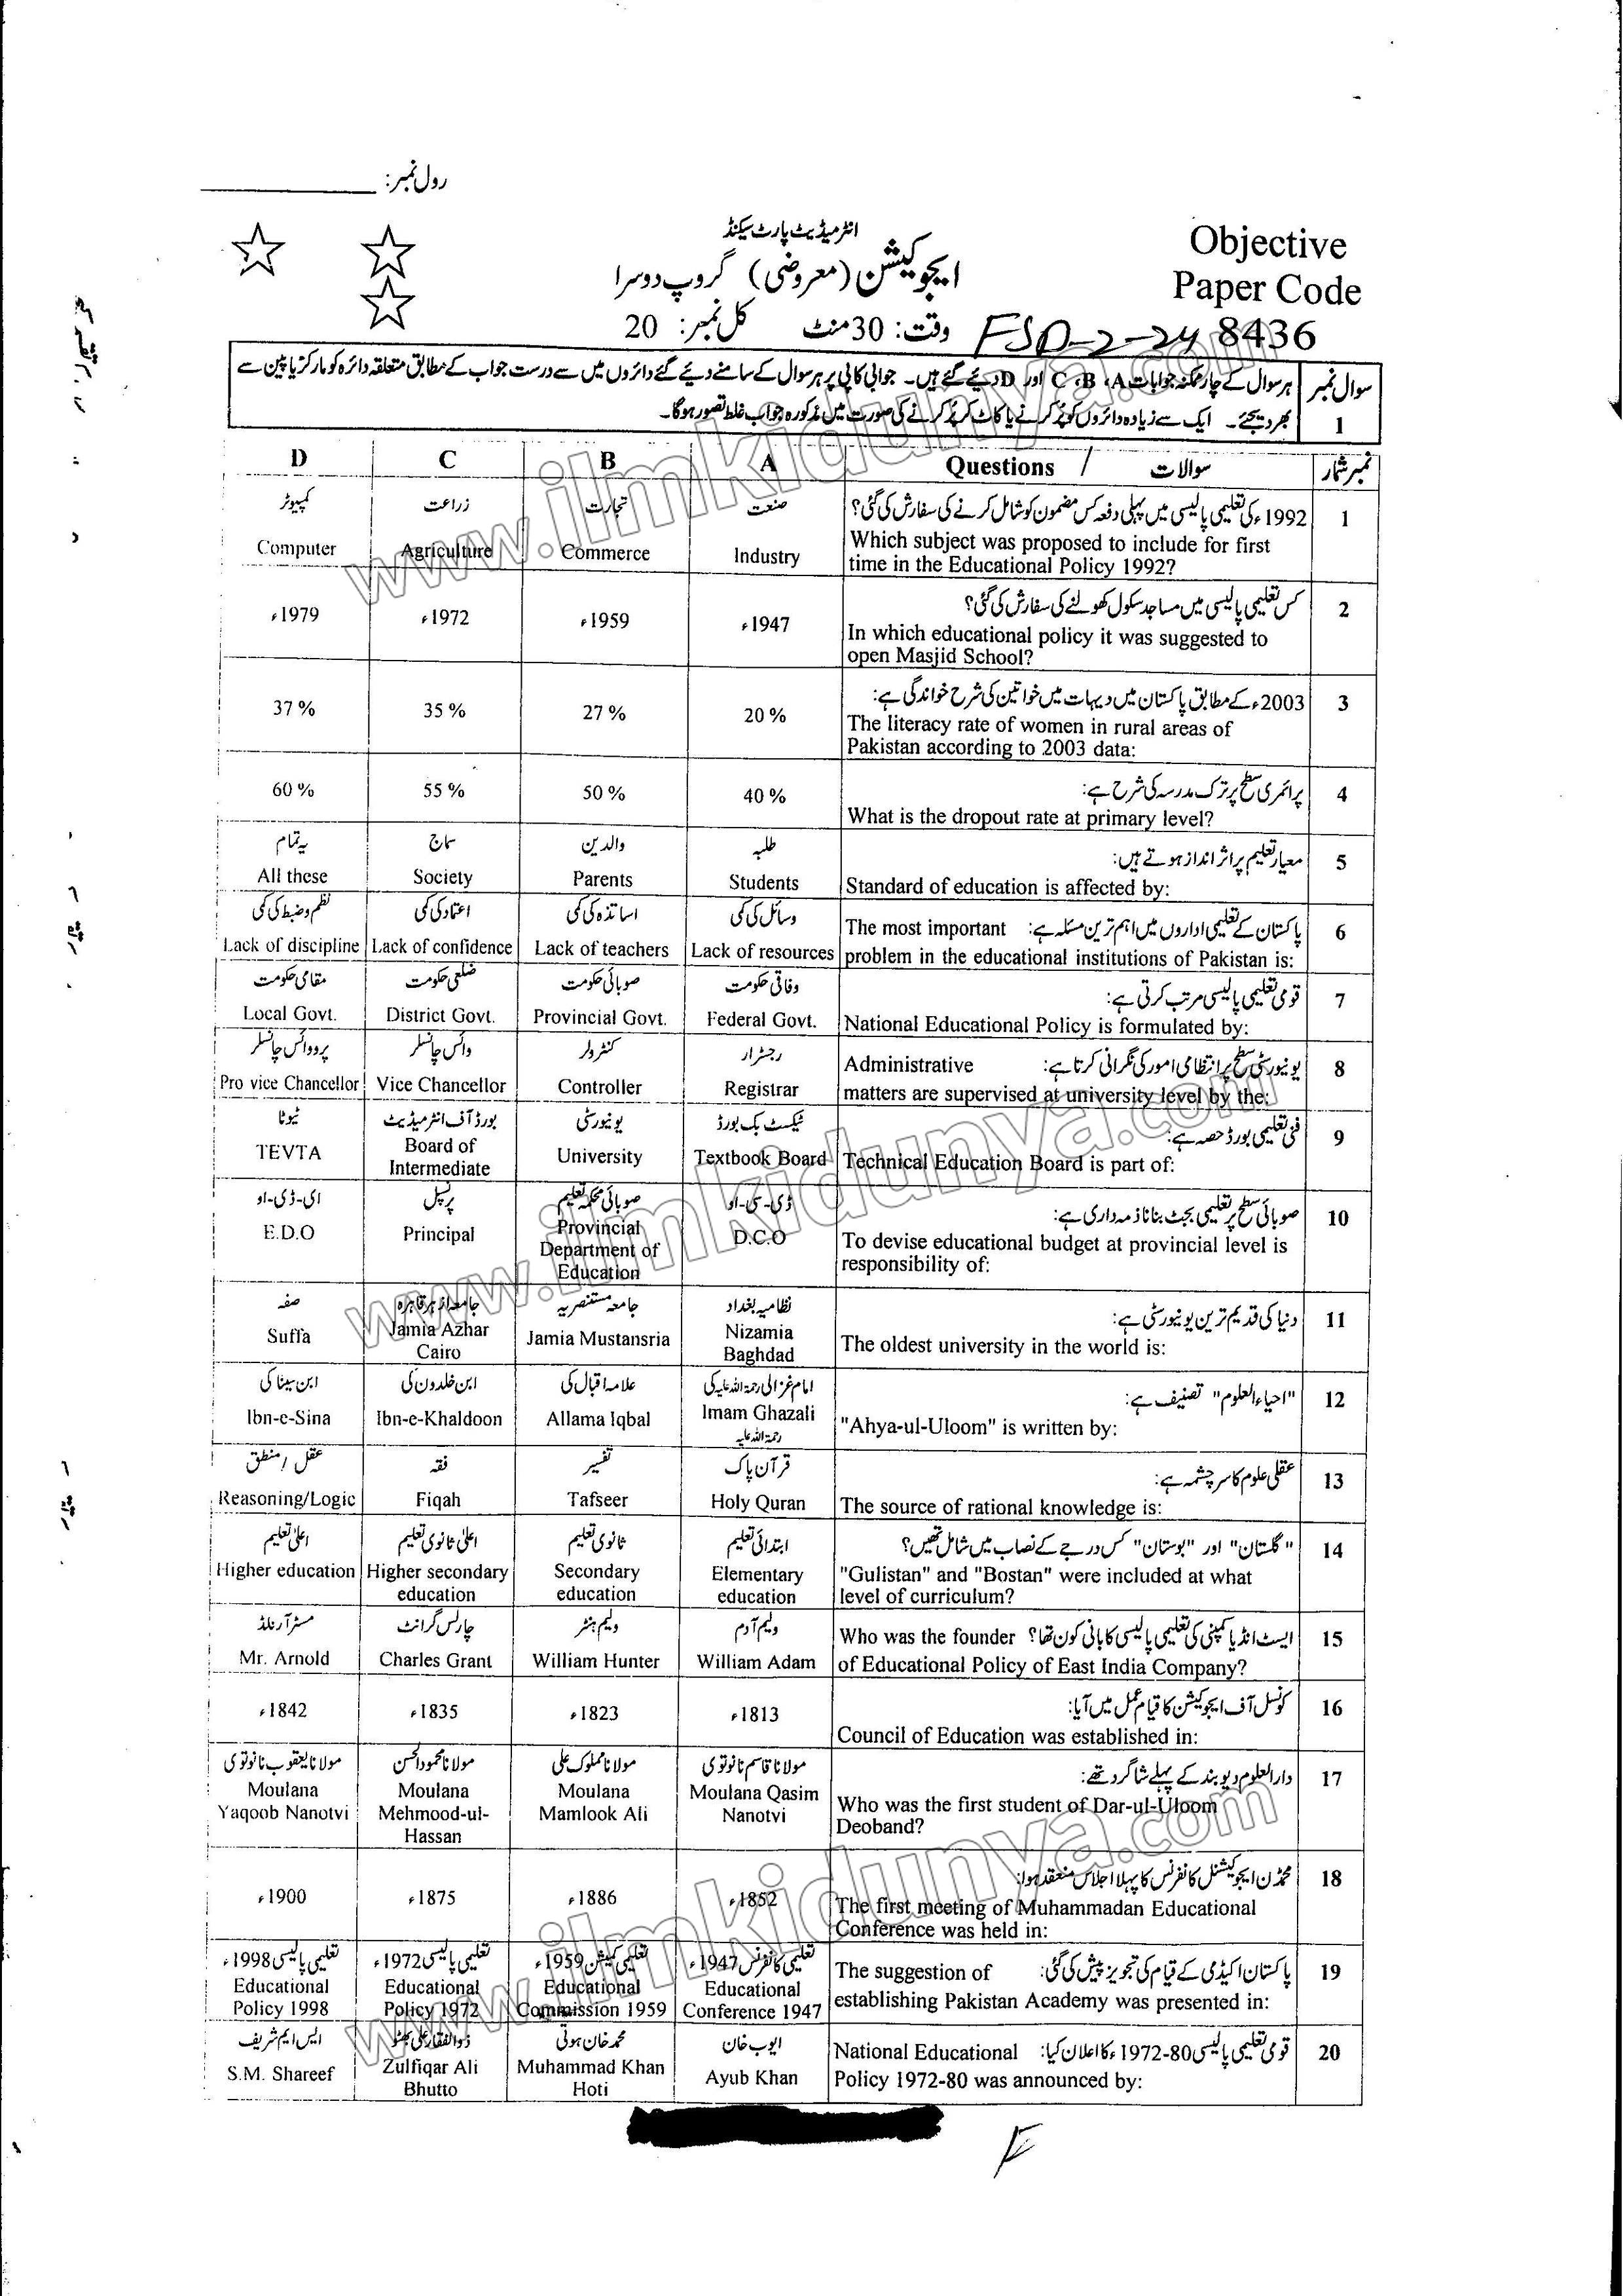 رول نمبر:
انٹرمیڈیٹ پارٹ سیکنڈ
ایجوکیشن (معروضی) گروپ دوسرا
وقت: 30 منٹ کل نمبر: 20
Objective
Paper Code
FSD-2-24 8436
سوال نمبر 1
ہر سوال کے چار ممکنہ جوابات A، B، C اور D دیئے گئے ہیں۔ جوابی کاپی پر ہر سوال کے سامنے دیئے گئے دائروں میں سے درست جواب کے مطابق متعلقہ دائرہ کو مارکر یا پین سے
بھر دیجئے۔ ایک سے زیادہ دائروں کو پُر کرنے یا کاٹ کر پُر کرنے کی صورت میں مذکورہ جواب غلط تصور ہوگا۔
نمبر شمار سوالات / Questions A B C D
1 1992ء کی تعلیمی پالیسی میں پہلی دفعہ کس مضمون کو شامل کرنے کی سفارش کی گئی؟
Which subject was proposed to include for first
time in the Educational Policy 1992?
صنعت تجارت زراعت کمپیوٹر
Industry Commerce Agriculture Computer
2 کس تعلیمی پالیسی میں مساجد سکول کھولنے کی سفارش کی گئی؟
In which educational policy it was suggested to
open Masjid School?
1947ء 1959ء 1972ء 1979ء
3 2003ء کے مطابق پاکستان میں دیہات میں خواتین کی شرح خواندگی ہے:
The literacy rate of women in rural areas of
Pakistan according to 2003 data:
20 % 27 % 35 % 37 %
4 پرائمری سطح پر ترک مدرسہ کی شرح ہے:
What is the dropout rate at primary level?
40 % 50 % 55 % 60 %
5 معیار تعلیم پر اثر انداز ہوتے ہیں:
Standard of education is affected by:
طلبہ والدین سماج یہ تمام
Students Parents Society All these
6 پاکستان کے تعلیمی اداروں میں اہم ترین مسئلہ ہے: The most important
problem in the educational institutions of Pakistan is:
وسائل کی کمی اساتذہ کی کمی اعتماد کی کمی نظم و ضبط کی کمی
Lack of resources Lack of teachers Lack of confidence Lack of discipline
7 قومی تعلیمی پالیسی مرتب کرتی ہے:
National Educational Policy is formulated by:
وفاقی حکومت صوبائی حکومت ضلعی حکومت مقامی حکومت
Federal Govt. Provincial Govt. District Govt. Local Govt.
8 یونیورسٹی سطح پر انتظامی امور کی نگرانی کرتا ہے: Administrative
matters are supervised at university level by the:
رجسٹرار کنٹرولر وائس چانسلر پرو وائس چانسلر
Registrar Controller Vice Chancellor Pro vice Chancellor
9 فنی تعلیمی بورڈ حصہ ہے:
Technical Education Board is part of:
ٹیکسٹ بک بورڈ یونیورسٹی بورڈ آف انٹرمیڈیٹ ٹیوٹا
Textbook Board University Board of Intermediate TEVTA
10 صوبائی سطح پر تعلیمی بجٹ بنانا ذمہ داری ہے:
To devise educational budget at provincial level is
responsibility of:
ڈی-سی-او صوبائی محکمہ تعلیم پرنسپل ای-ڈی-او
D.C.O Provincial Department of Education Principal E.D.O
11 دنیا کی قدیم ترین یونیورسٹی ہے:
The oldest university in the world is:
نظامیہ بغداد جامعہ مستنصریہ جامعہ ازہر قاہرہ صفہ
Nizamia Baghdad Jamia Mustansria Jamia Azhar Cairo Suffa
12 "احیاء العلوم" تصنیف ہے:
"Ahya-ul-Uloom" is written by:
امام غزالی رحمۃ اللہ علیہ کی علامہ اقبال کی ابن خلدون کی ابن سینا کی
Imam Ghazali رحمۃ اللہ علیہ Allama Iqbal Ibn-e-Khaldoon Ibn-e-Sina
13 عقلی علوم کا سرچشمہ ہے:
The source of rational knowledge is:
قرآن پاک تفسیر فقہ عقل / منطق
Holy Quran Tafseer Fiqah Reasoning/Logic
14 "گلستان" اور "بوستان" کس درجے کے نصاب میں شامل تھیں؟
"Gulistan" and "Bostan" were included at what
level of curriculum?
ابتدائی تعلیم ثانوی تعلیم اعلیٰ ثانوی تعلیم اعلیٰ تعلیم
Elementary education Secondary education Higher secondary education Higher education
15 ایسٹ انڈیا کمپنی کی تعلیمی پالیسی کا بانی کون تھا؟ Who was the founder
of Educational Policy of East India Company?
ولیم آدم ولیم ہنٹر چارلس گرانٹ مسٹر آرنلڈ
William Adam William Hunter Charles Grant Mr. Arnold
16 کونسل آف ایجوکیشن کا قیام عمل میں آیا:
Council of Education was established in:
1813ء 1823ء 1835ء 1842ء
17 دارالعلوم دیوبند کے پہلے شاگرد تھے:
Who was the first student of Dar-ul-Uloom
Deoband?
مولانا قاسم نانوتوی مولانا مملوک علی مولانا محمود الحسن مولانا یعقوب نانوتوی
Moulana Qasim Nanotvi Moulana Mamlook Ali Moulana Mehmood-ul-Hassan Moulana Yaqoob Nanotvi
18 محمڈن ایجوکیشنل کانفرنس کا پہلا اجلاس منعقد ہوا:
The first meeting of Muhammadan Educational
Conference was held in:
1852ء 1886ء 1875ء 1900ء
19 پاکستان اکیڈمی کے قیام کی تجویز پیش کی گئی: The suggestion of
establishing Pakistan Academy was presented in:
تعلیمی کانفرنس 1947ء تعلیمی کمیشن 1959ء تعلیمی پالیسی 1972ء تعلیمی پالیسی 1998ء
Educational Conference 1947 Educational Commission 1959 Educational Policy 1972 Educational Policy 1998
20 قومی تعلیمی پالیسی 80-1972ء کا اعلان کیا: National Educational
Policy 1972-80 was announced by:
ایوب خان محمد خان ہوتی ذوالفقار علی بھٹو ایس ایم شریف
Ayub Khan Muhammad Khan Hoti Zulfiqar Ali Bhutto S.M. Shareef
www.ilmkidunya.com
www.ilmkidunya.com
www.ilmkidunya.com